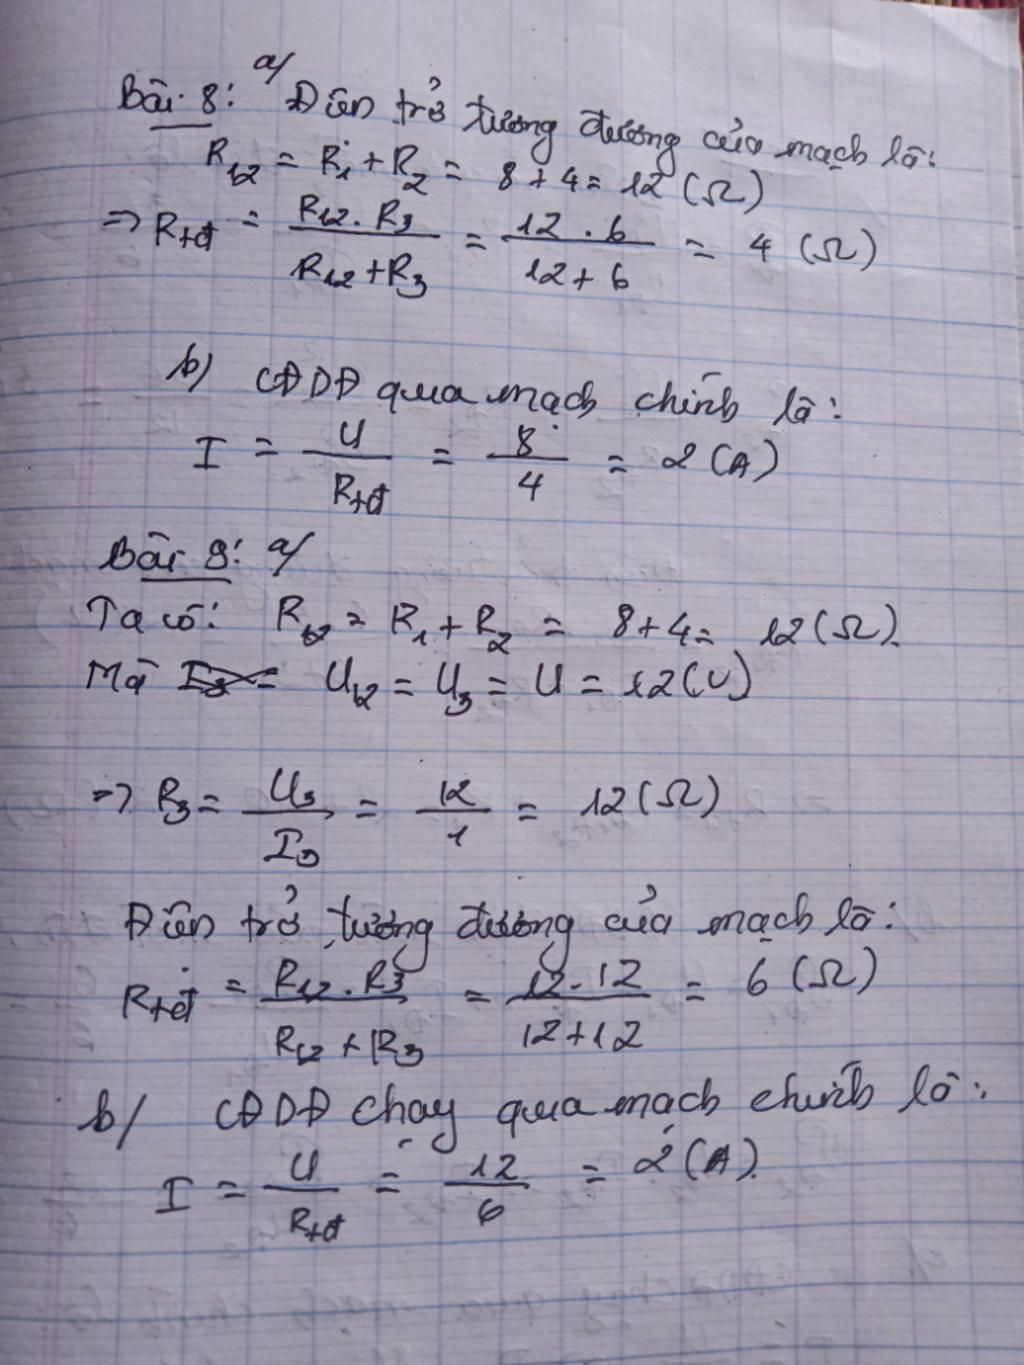 Bài 8: a/ Điện trở tương đương của mạch là:
R12 = R1 + R2 = 8 + 4 = 12 (Ω)
=> Rtđ = R12 . R3 / R12 + R3 = 12 . 6 / 12 + 6 = 4 (Ω)
b) CĐDĐ qua mạch chính là:
I = U / Rtđ = 8 / 4 = 2 (A)
Bài 9: a/
Ta có: R12 = R1 + R2 = 8 + 4 = 12 (Ω).
Mà U12 = U3 = U = 12 (V)
=> R3 = U3 / I3 = 12 / 1 = 12 (Ω)
Điện trở tương đương của mạch là:
Rtđ = R12 . R3 / R12 + R3 = 12 . 12 / 12 + 12 = 6 (Ω)
b/ CĐDĐ chạy qua mạch chính là:
I = U / Rtđ = 12 / 6 = 2 (A).